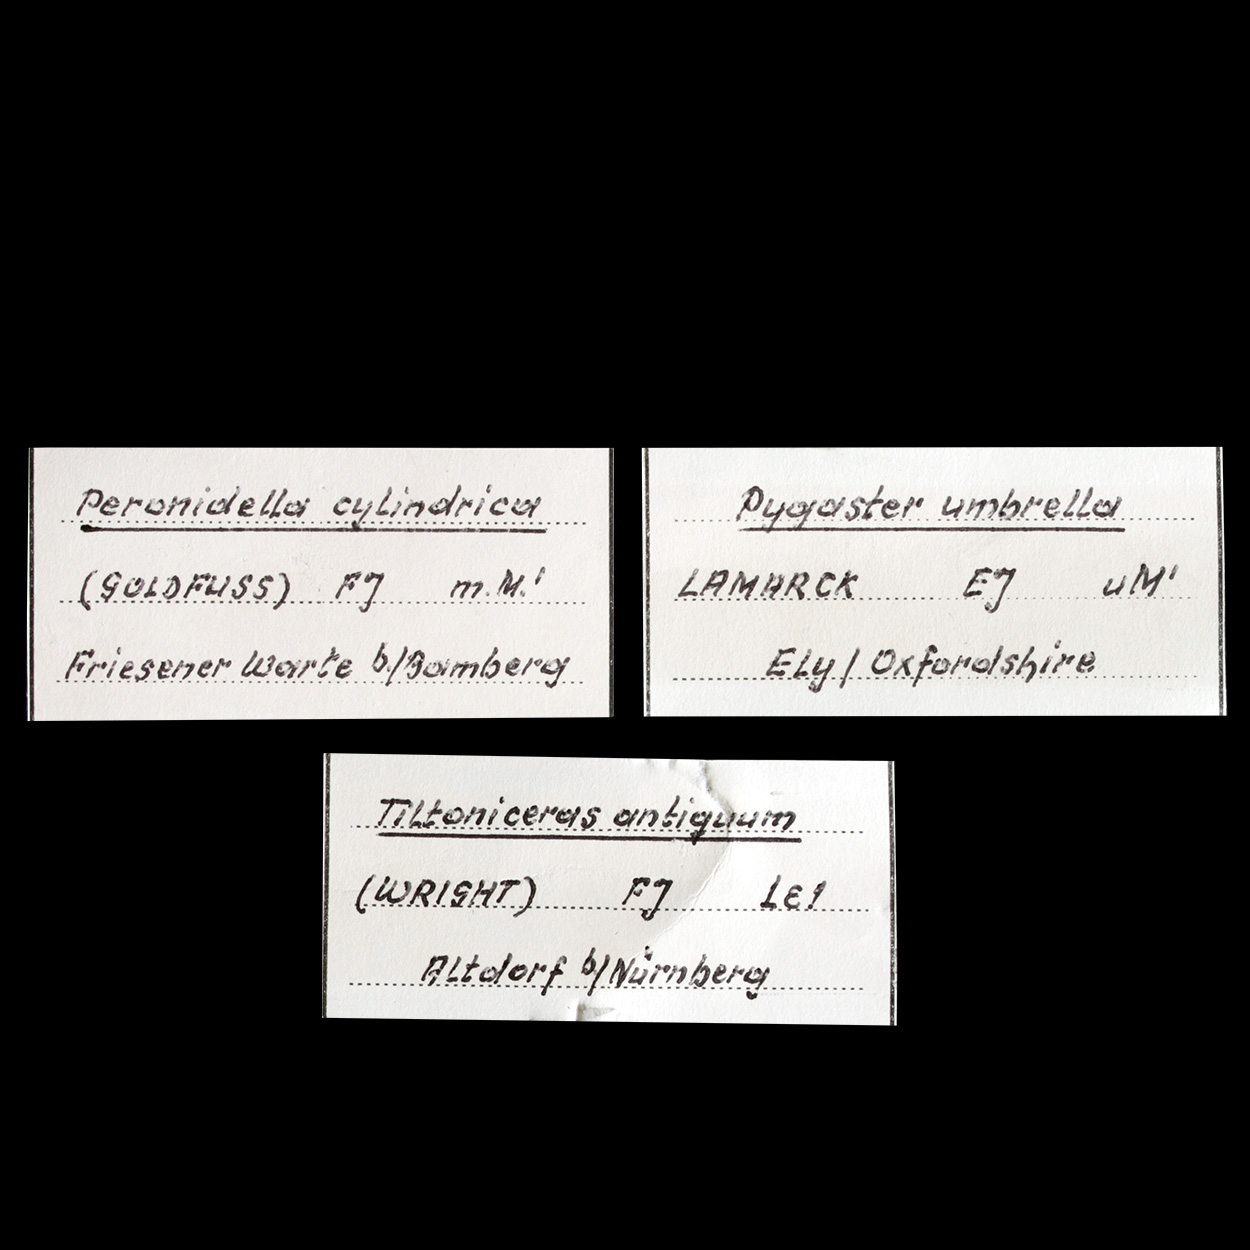 Peronidella cylindrica
(GOLDFUSS) FJ m.M.'
Friesener Warte b./Bamberg
Pygaster umbrella
LAMARCK EJ uM'
Ely / Oxfordshire
Tiltoniceras antiquum
(WRIGHT) FJ Lε1
Altdorf b/Nürnberg